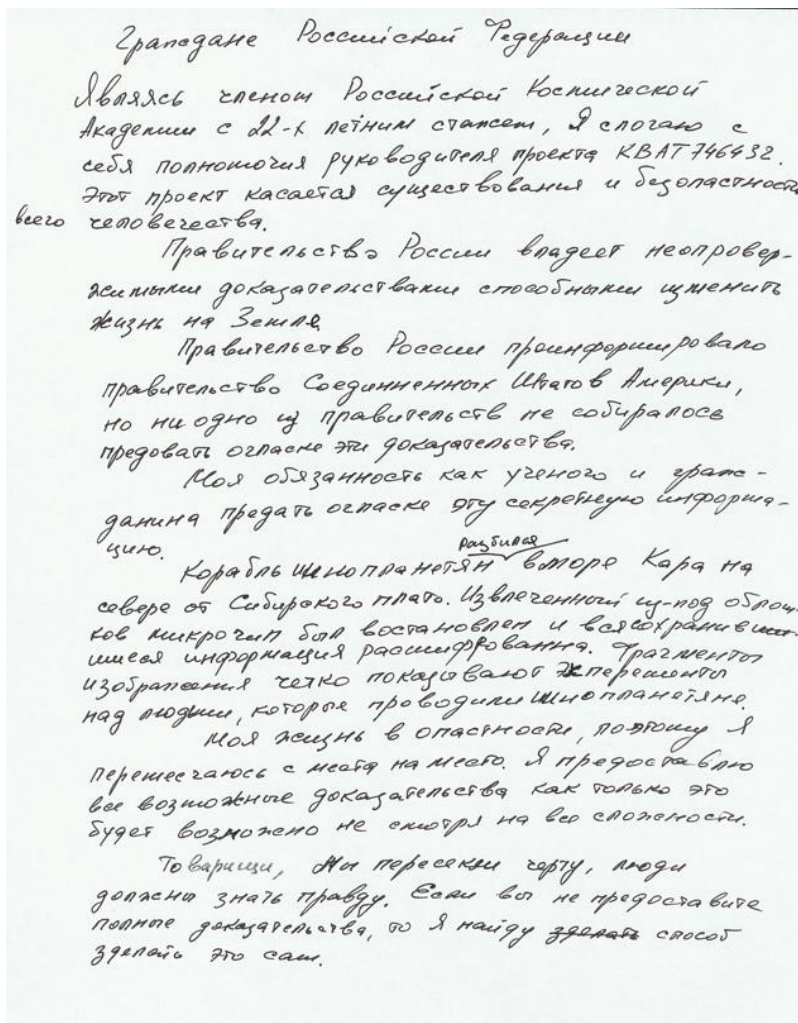 Граждане Российской Федерации
Являясь членом Российской Космической
Академии с 22-х летним стажем, Я слогаю с
себя полномочия руководителя проекта КВАТ746432.
Этот проект касается существования и безопастности
всего человечества.
Правительство России владеет неопровер-
жимыми доказательствами способными изменить
жизнь на Земле
Правительство России проинформировало
правительство Соединненных Штатов Америки,
но ни одно из правительств не собиралось
предовать огласке эти доказательства.
Моя обязанность как ученого и граж-
данина предать огласке эту секретную информа-
цию.
Корабль инопланетян разбился в море Кара на
севере от Сибирского плато. Извлеченный из-под облом-
ков микрочип был востановлен и вся сохранивш
шиеся информация расшифрованна. Фрагменты
изображения четко показывают эксперементы
над людьми, которые проводили инопланетяне.
Моя жизнь в опастности, поэтому Я
перемесчаюсь с места на место. Я предоставлю
все возможные доказательства как только это
будет возможено не смотря на все сложности.
Товарищи, Мы пересекли черту, люди
должны знать правду. Если вы не предоставите
полные доказательства, то Я найду зделать способ
зделать это сам.